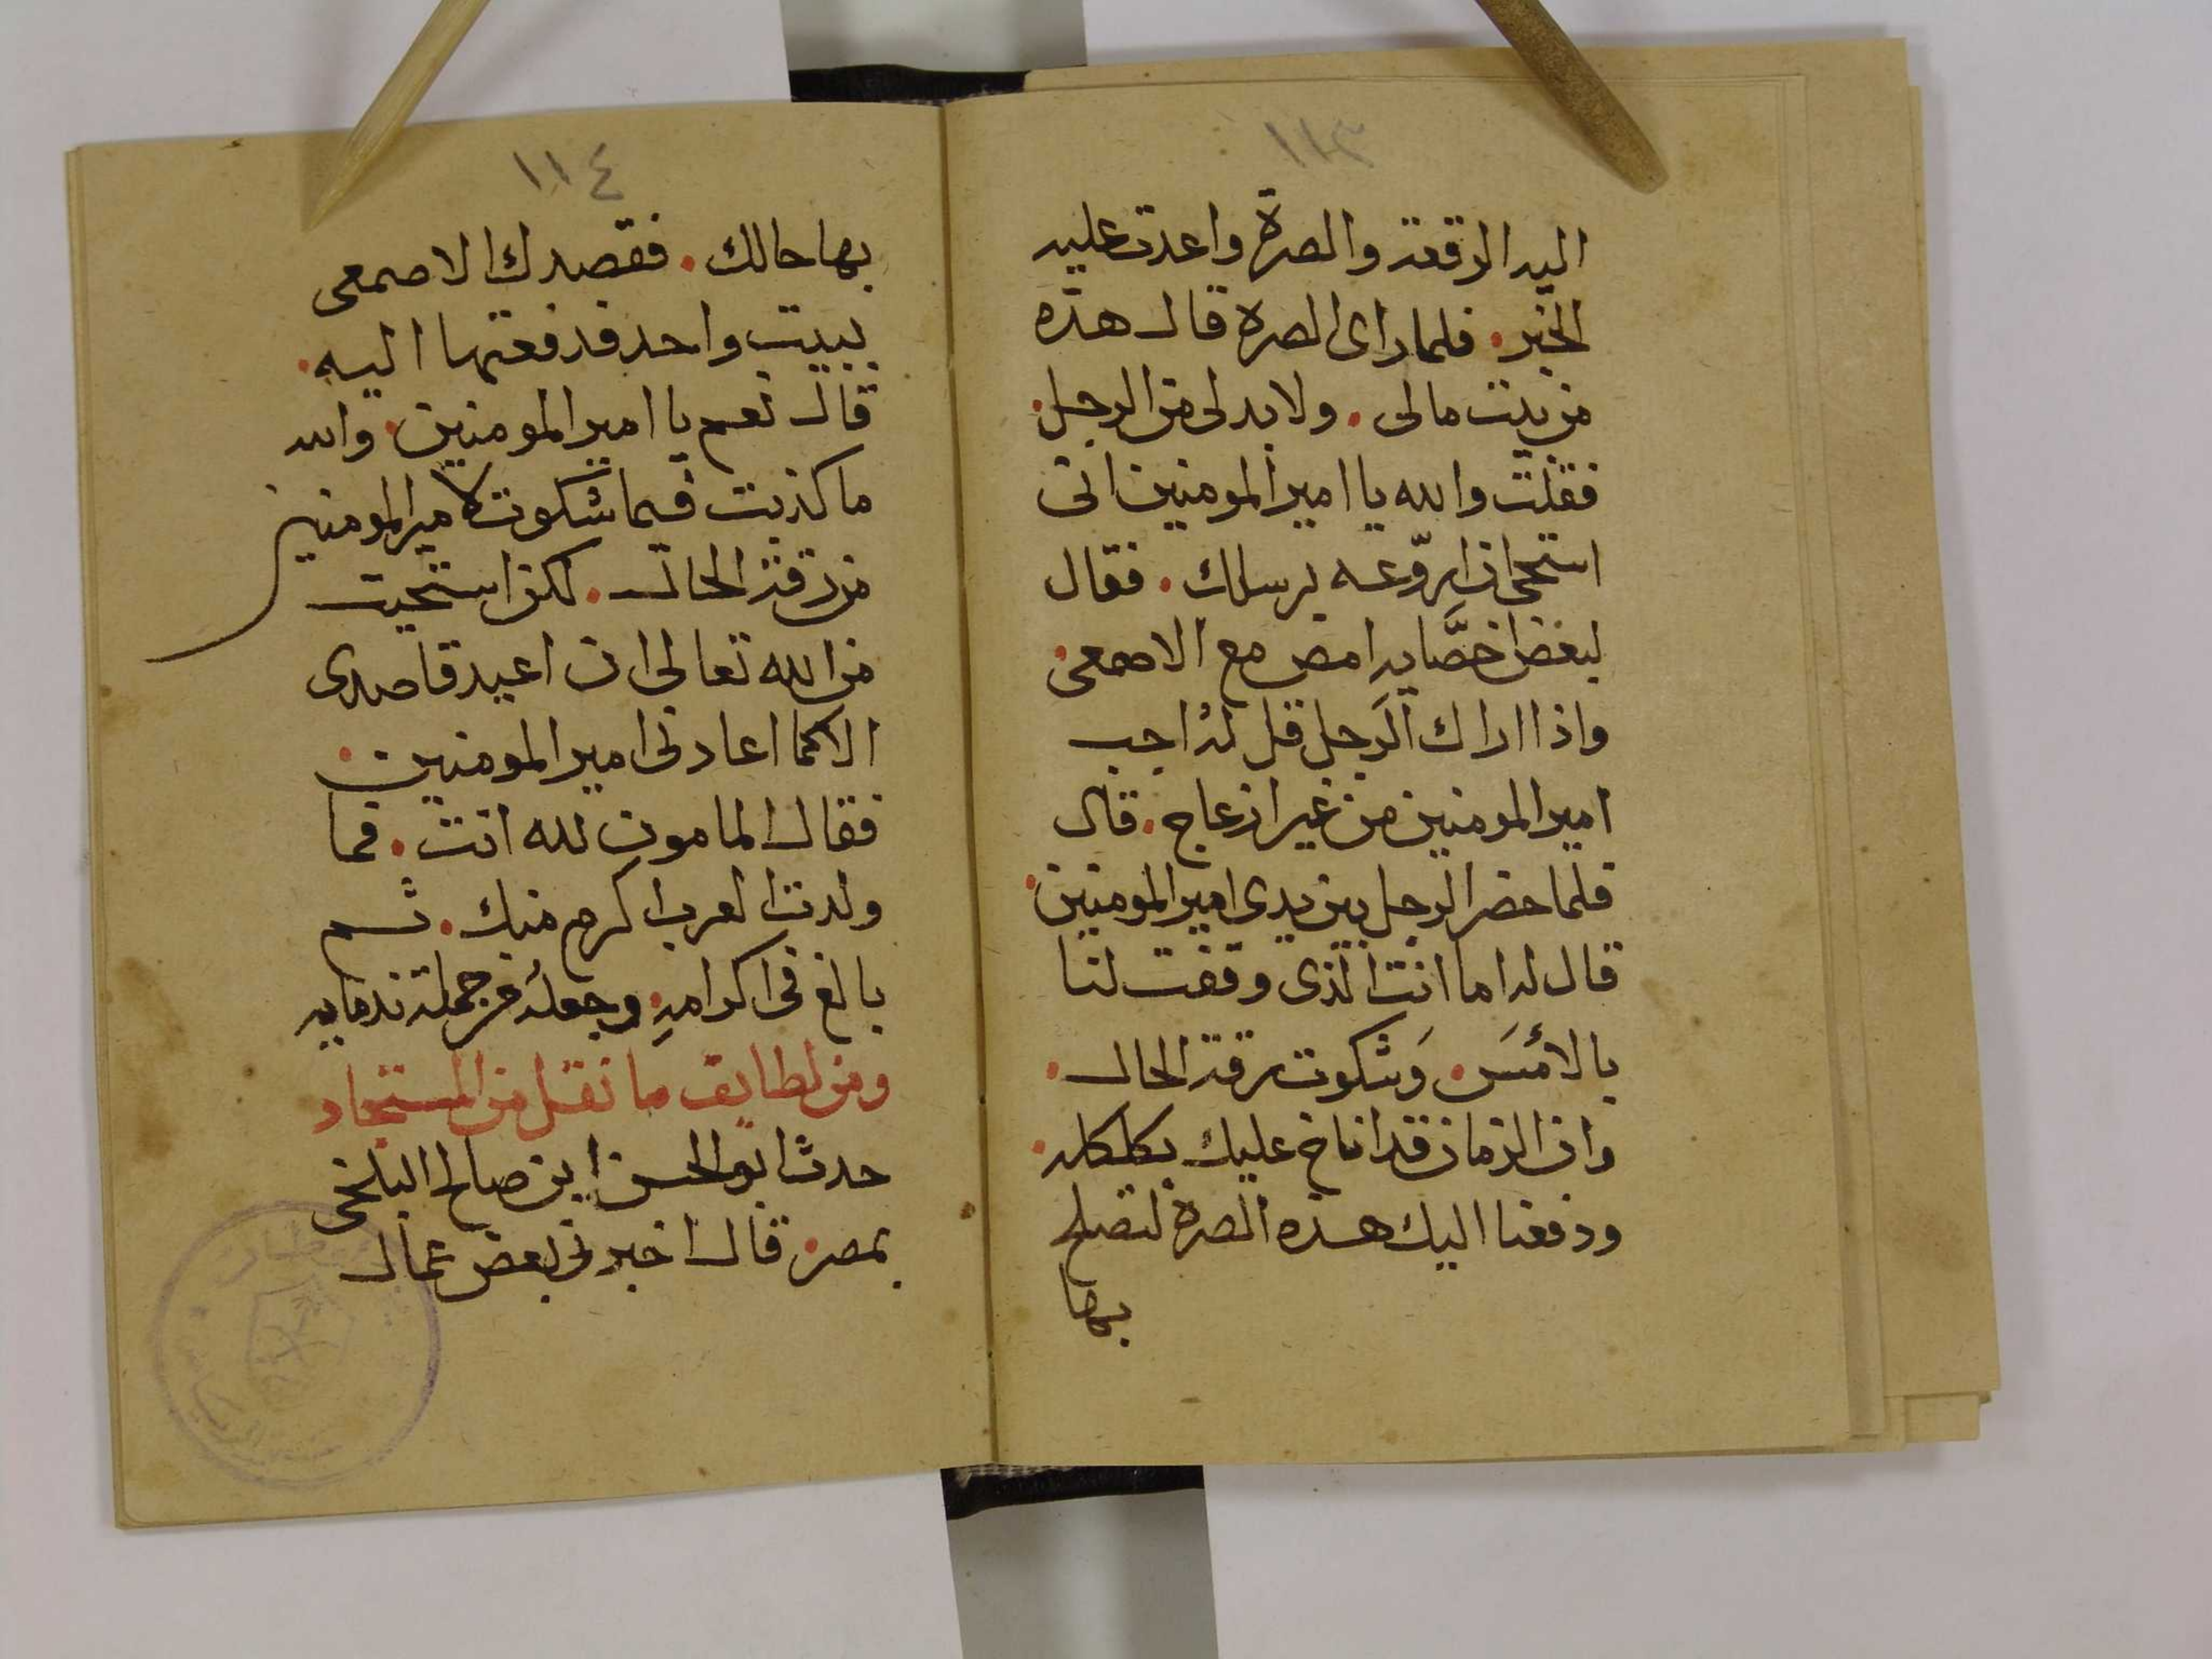 ١١٣
اليه الرقعة والصرة واعدت عليه
الخبر. فلما راى الصرة قال هذه
من بيت مالى. ولا بد لى من الرجل.
فقلت والله يا امير المومنين انى
استحى ان اروّعه برسلك. فقال
لبعض خصَّايه امض مع الاصمعى.
واذا اراك الرجل قل له اجب
امير المومنين من غير ازعاج. قال
فلما حضر الرجل بين يدى امير المومنين.
قال له اما انت الذى وقفت لنا
بالأمسَ. وَشكوت رقة الحال.
وان الزمان قد اناخ عليك بكلكله.
ودفعنا اليك هذه الصرة لتصلح
بها
١١٤
بها حالك. فقصدك الاصمعى
ببيت واحد فدفعتها اليه.
قال نعم يا امير المومنين. والله
ما كذبت فيما شكوت لامير المومنين
من رقة الحال. لكن استحيت
من الله تعالى ان اعيد قاصدى
الا كما اعادنى امير المومنين.
فقال المامون لله انت. فما
ولدت العرب اكرم منك. ثم
بالغ فى اكرامهِ. وجعلهُ من جملة ندمايه
ومن لطايف ما نقل من المستجاد
حدث ابو الحسن ابن صالح البلخى
بمصر. قال اخبرنى بعض عمال